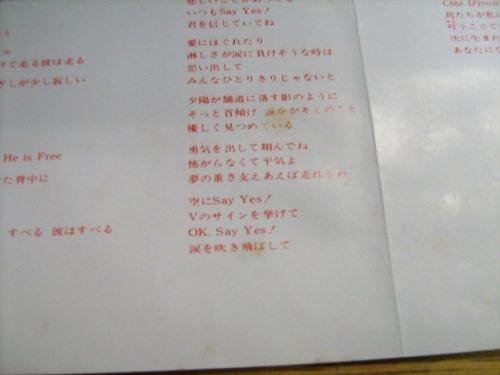 いつもSay Yes!
君を信じていてね
愛にはぐれたり
淋しさが涙に負けそうな時は
思い出して
みんなひとりきりじゃないと
夕陽が舗道に落す影のように
そっと首傾げ 誰かがキミのこと
優しく見つめている
勇気を出して翔んでね
怖がらなくて平気よ
夢の重さ支えあえば走れるわ
空にSay Yes!
Vのサインを挙げて
OK, Say Yes!
涙を吹き飛ばして
けて走る彼は走る
ざしが少し寂しい
He is Free
た背中に
すべる 彼はすべる
鳥たちが私
叶うことで
次に生まれ
あなたにな